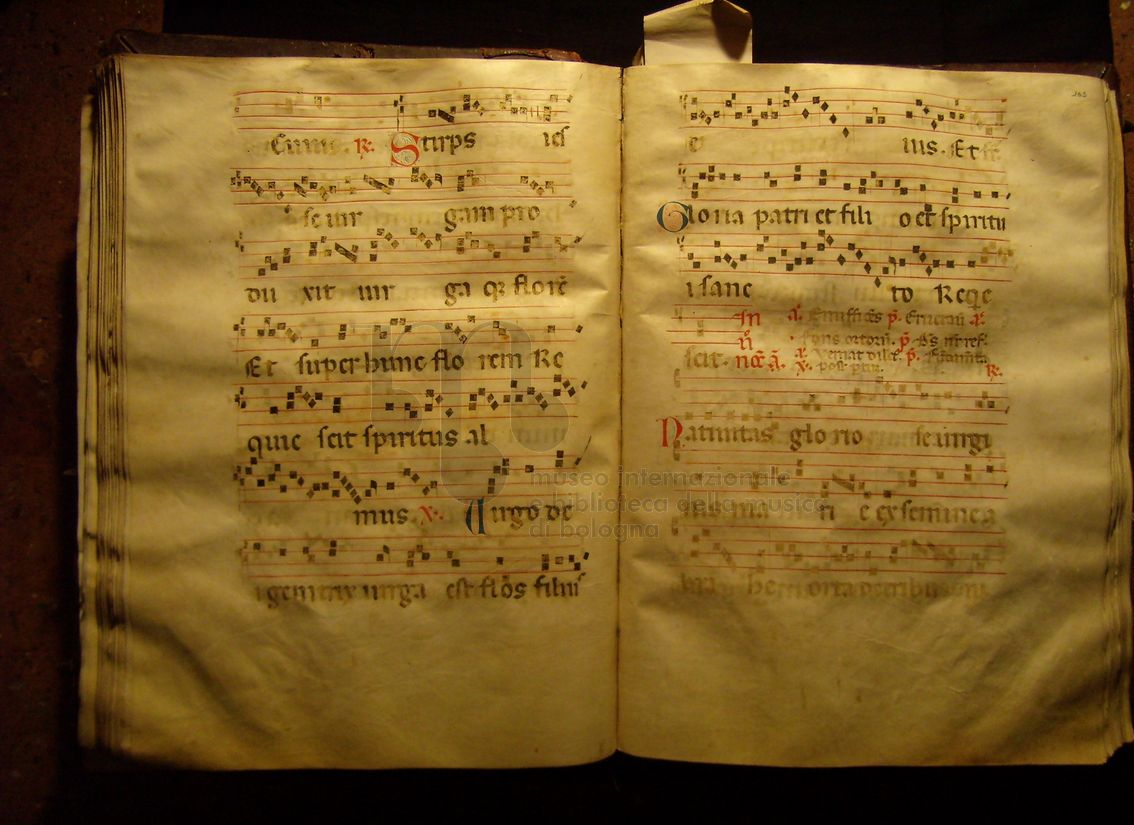 Cuius. R. Stirps ies
se uir gam pro
du xit uir ga q; florē
Et super hunc flo rem Re
quie scit spiritus al
mus. v. Uirgo de
i genitrix uirga est flos filius
e ius. Et s.
Gloria patri et fili o et spiritu
i sanc to Reqe
scit.
Natiuitas glo rio se uirgi
nis ma ri e ex semine a
bra he orta
165
museo internazionale
e biblioteca della musica
di bologna